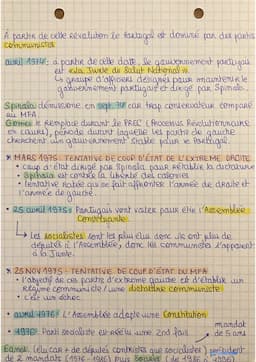 À partir de cette révolution le Portugal est dominé par des partis
communistes
avril 1974 : à partir de cette date, le gouvernement portugais
est « la Junte de Salut National »
↳ groupe d'officiers désignés pour maintenir le
gouvernement portugais et dirigé par Spinola.
Spinola démissionne en sept. 74 car trop conservateur comparé
au MFA.
Gomes le remplace durant le PREC (Processus Révolutionnaire
en cours), période durant laquelle les partis de gauche
cherchent un gouvernement stable pour le Portugal.
* MARS 1975 - TENTATIVE DE COUP D'ETAT DE L'EXTREME DROITE
• coup d'état dirigé par Spinola pour rétablir la dictature
• Spinola est contre la liberté des colonies
• tentative ratée qui se fait affronter l'armée de droite et
l'armée de gauche.
• 25 avril 1975 : Portugais vont voter pour élire l'Assemblée
Constituante.
↳ les socialistes sont les plus élus donc ils ont plus de
députés à l'Assemblée, donc les communistes s'opposent
à la Junte.
* 25 NOV 1975 - TENTATIVE DE COUP D'ETAT DU MFA
• l'objectif de ces partis d'extrême gauche est d'établir un
régime communiste / une dictature communiste
• c'est un échec
• avril 1976 : L'Assemblée adopte une Constitution
• 1976 : Parti socialiste est réélu une 2nd fois
mandat
de 5 ans
Eanes (élu car + de députés centristes que socialistes) président
de 2 mandats (1976 - 1986) puis Soares (de 1986 à 1996)